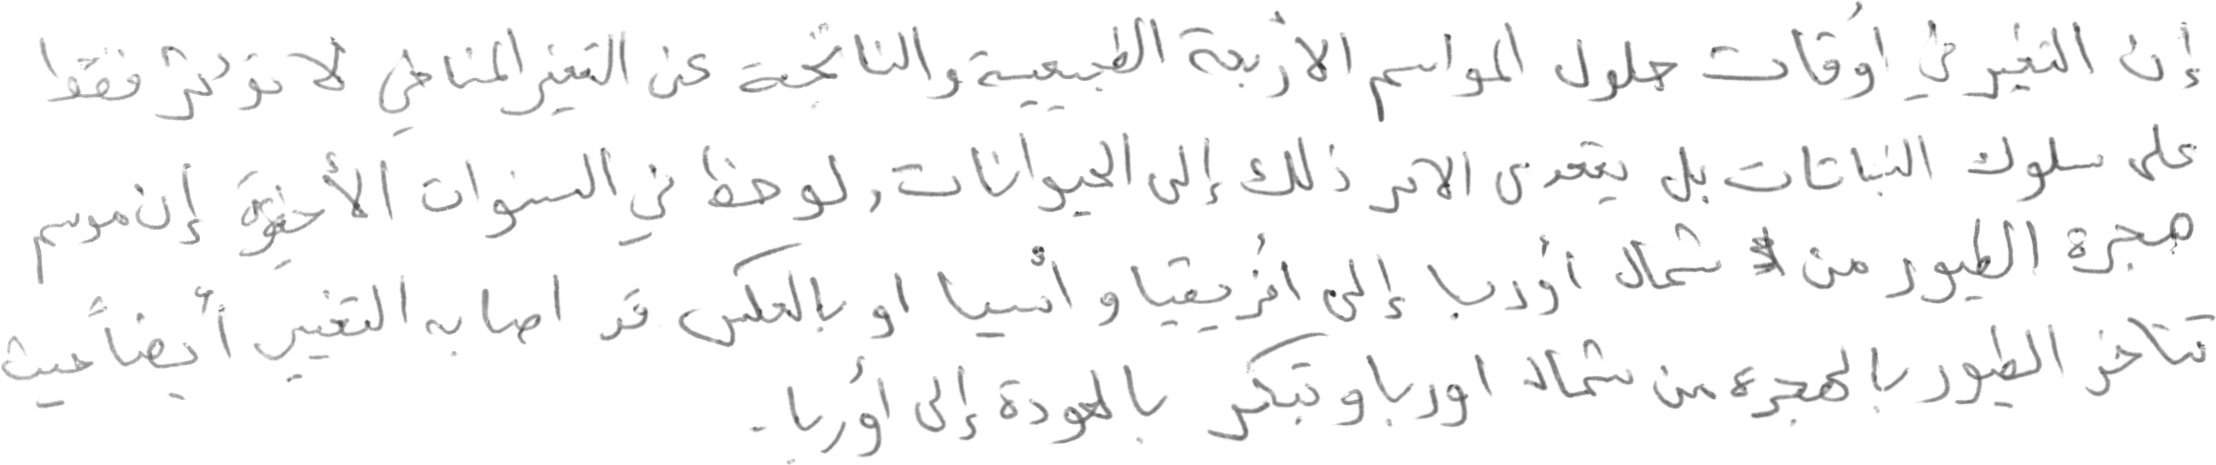 إن التغير في أوقات حلول المواسم الأربعة الطبيعية والناتجة عن التغير المناخي لا تؤثر فقط
على سلوك النباتات بل يتعدى الامر ذلك إلى الحيوانات, لوحظ في السنوات الأخيرة إن موسم
هجرة الطيور من شمال أوربا إلى افريقيا و أسيا او بالعكس قد اصابه التغيير أيضاً حيث
تتاخر الطيور بالهجره من شمال اوربا و تبكر بالعودة إلى أوربا.